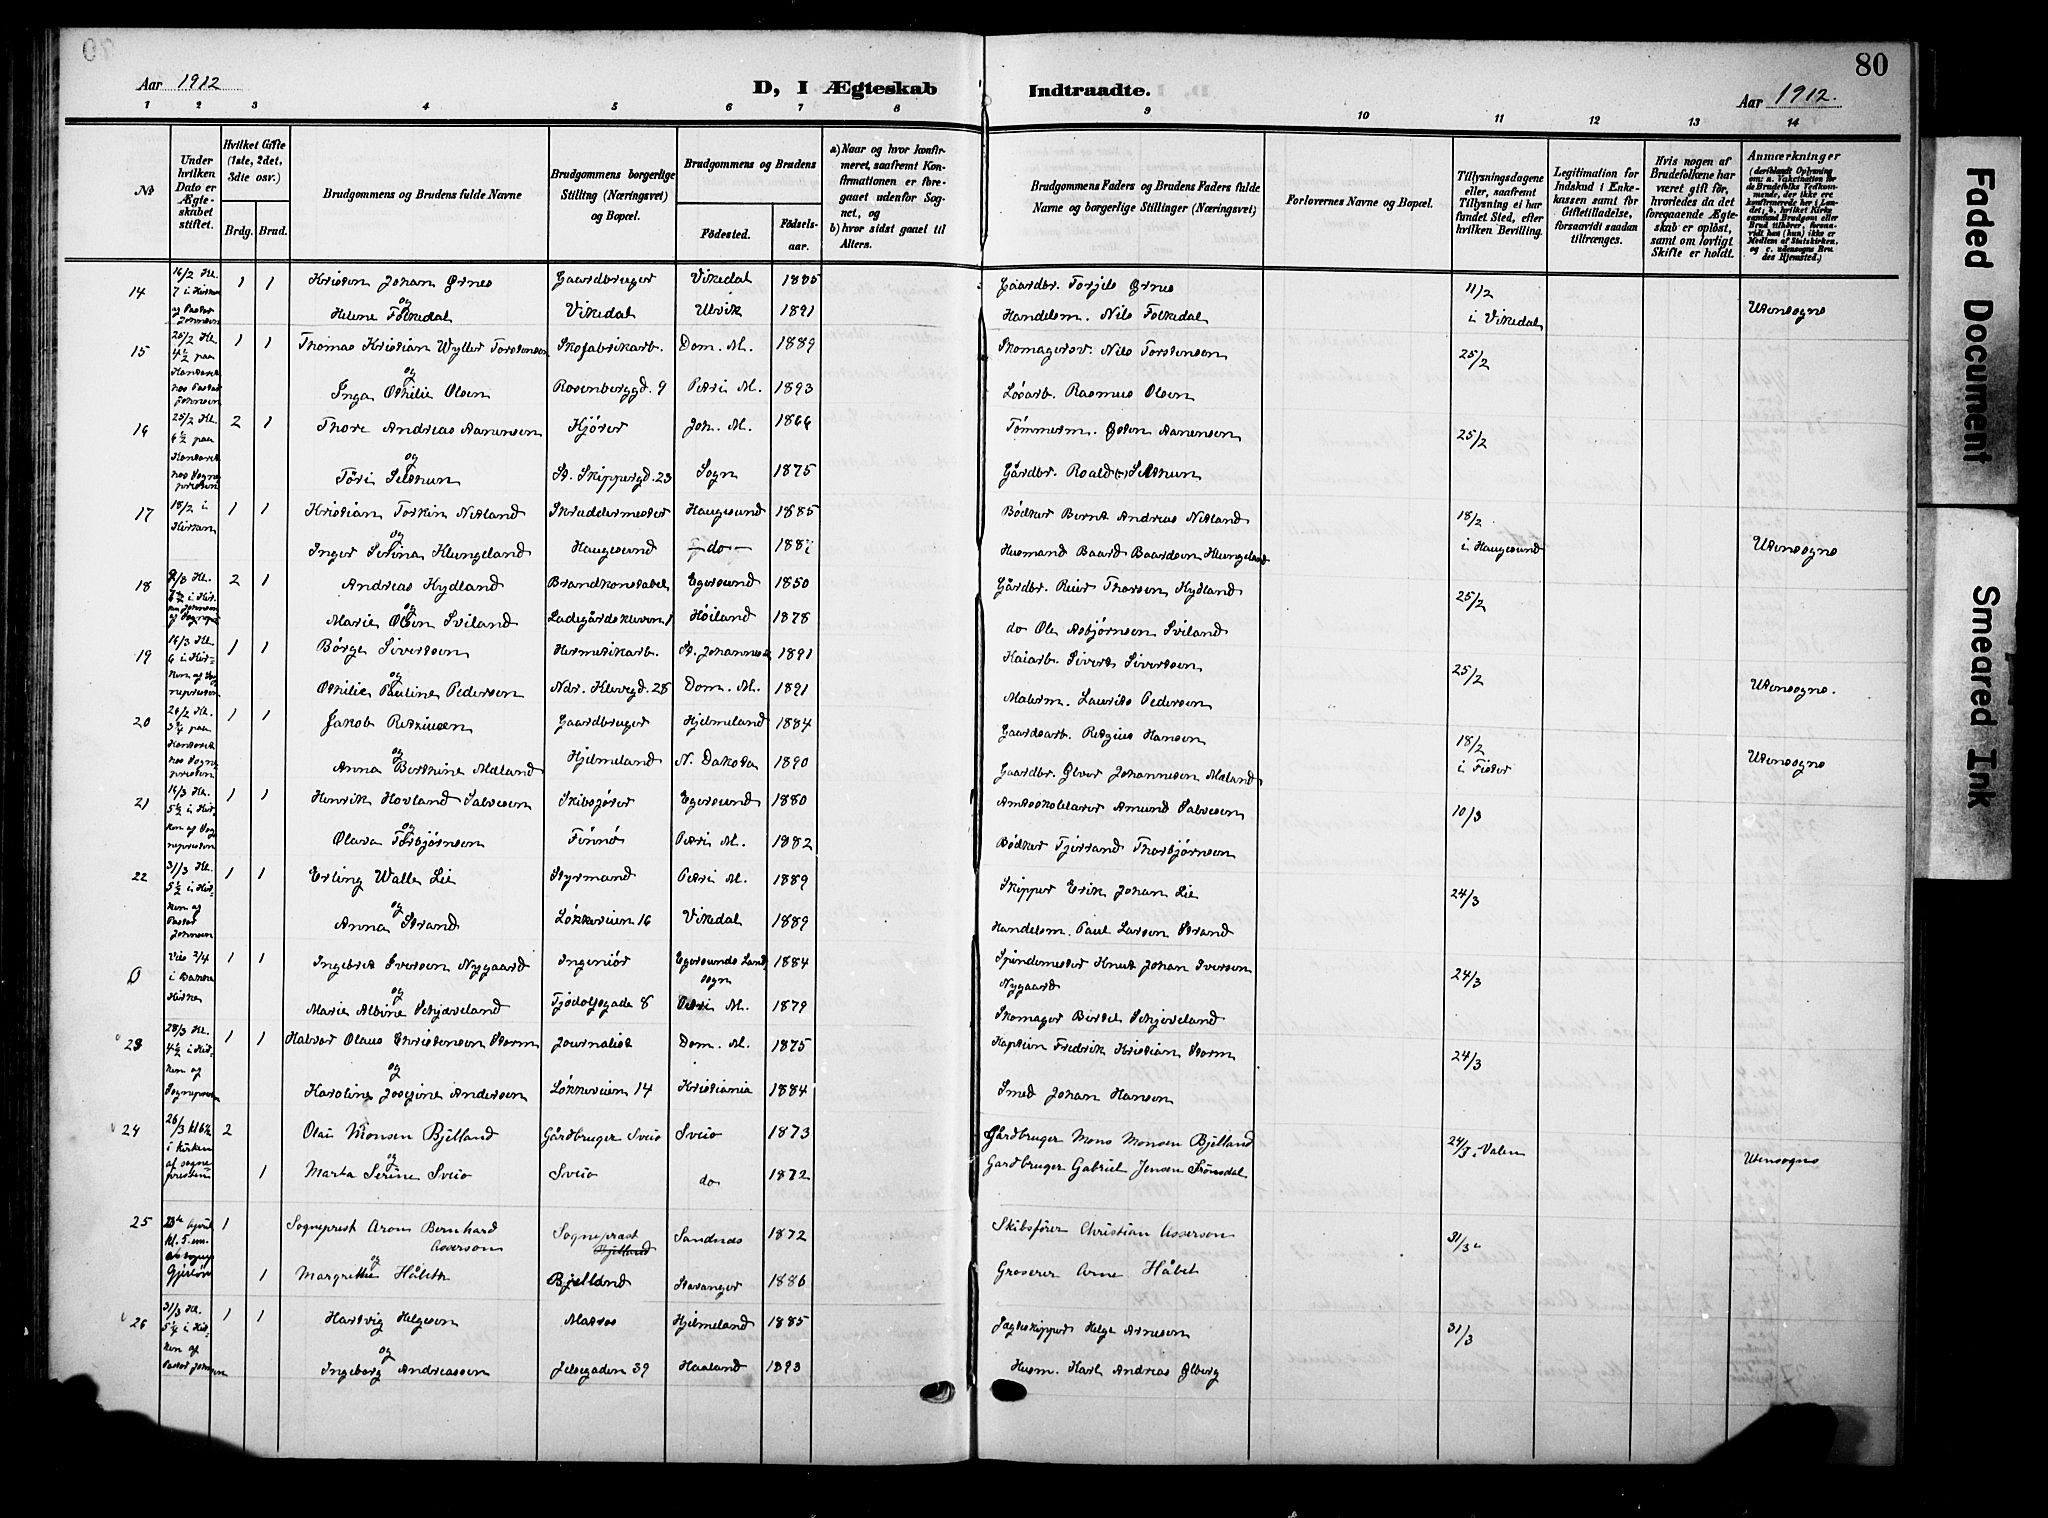 80
Aar 1912
D, I Ægteskab Indtraadte.
Aar 1912.
1 2 3 4 5 6 7 8 9 10 11 12 13 14
No
Under hvilken Dato er Ægteskabet stiftet.
Hvilket Gifte (1ste, 2det, 3die osv.)
Brdg. Brud.
Brudgommens og Brudens fulde Navne
Brudgommens borgerlige Stilling (Næringsvei) og Bopæl.
Brudgommens og Brudens
Fødested. Fødselsaar.
a) Naar og hvor konfirmeret, saafremt Konfirmationen er foregaaet udenfor Sognet, og
b) hvor sidst gaaet til Alters.
Brudgommens Faders og Brudens Faders fulde Navne og borgerlige Stillinger (Næringsvei)
Forlovernes Navne og Bopæl.
Tillysningsdagene eller, saafremt Tillysning ei har fundet Sted, efter hvilken Bevilling.
Legitimation for Indskud i Enkekassen samt for Giftetilladelse, forsaavidt saadan tiltrænges.
Hvis nogen af Brudefolkene har været gift før, hvorledes da det foregaaende Ægteskab er opløst, samt om lovligt Skifte er holdt.
Anmærkninger
14 16/2 Kl. 7 i Kirken 1 1 Kristen Johan Ørnes Gaardbruger Vikedal 1885 Gaardbr. Torjils Ørnes 11/2
og
Helene Folkedal Vikedal Ulvik 1891 Handelsm. Nils Folkedal i Vikedal Utensogns
15 25/2 Kl. 4½ paa Kontoret hos Pastor Johnsen 1 1 Thomas Kristian Wyller Torstensen Skofabrikarb. Dom. M. 1889 Skomagersv. Nils Torstensen 25/2
og
Inga Othilie Olsen Rosenberggd. 9 Petri M. 1893 Løsarb. Rasmus Olsen
16 25/2 Kl. 6½ paa Kontoret hos Sognepresten 2 1 Thore Andreas Aanensen Kjører Joh. M. 1866 Tømmerm. Østen Aanensen 25/2
og
Tøri Selthun St. Skippergd. 23 Sogn 1875 Gårdbr. Roald Selthun
17 18/2 i Kirken 1 1 Kristian Torkin Netland Skreddermester Haugesund 1885 Bødker Bernt Andreas Netland 18/2
og
Inger Serina Klungeland Haugesund do Husmand Baard Baardsen Klungeland i Haugesund Utensogns
18 2 1 Andreas Hydland Brandkonstabel Egersund 1850 Gårdbr. Reier Thorsen Hydland 25/2
og
Marie Olsen Sviland Ladegårdskleven 1 Høiland 1878 do Ole Asbjørnsen Sviland
19 16/3 Kl. 6 i Kirken af Sognepresten 1 1 Børge Sivertsen Hermetikarb. St. Johannes 1891 Kaiarb. Sivert Sivertsen 25/2
og
Othilie Pauline Pedersen Ndr. Klevegd. 28 Dom. M. 1891 Malerm. Laurits Pedersen Utensogns.
20 26/2 Kl. 3¾ paa Kontoret hos Sognepresten 1 1 Jakob Retziusen Gaardbruger Hjelmeland 1884 Gaardsarb. Retzius Hansen 18/2
og
Anna Berthine Mæland Hjelmeland N. Dakota 1890 Gaardbr. Øiver Johannesen Mæland i Fister Utensogns
21 16/3 Kl. 5½ i Kirken af Sognepresten 1 1 Henrik Hovland Salvesen Skibsfører Egersund 1880 Amtsskolelærer Amund Salvesen 10/3
og
Olava Torbjørnsen Finnø Petri M. 1882 Bødker Tjerrand Thorbjørnsen
22 31/3 Kl. 5½ i Kirken af Pastor Johnsen 1 1 Erling Walle Lie Styrmand Petri M. 1889 Skipper Erik Johan Lie 24/3
og
Anna Strand Løkkeveien 16 Vikedal 1889 Handelsm. Paul Larsen Strand
0 Vies 2/4 i Bakke Kirke 1 1 Ingebret Iversen Nygaard Ingeniør Egersunds Landsogn 1884 Spindemester Knut Johan Iversen Nygaard 24/3
og
Marie Albine Skjæveland Tjodolfsgade 8 Petri M. 1879 Skomager Bertel Skjæveland
23 28/3 Kl. 4½ i Kirken af Sognepresten 1 1 Halvor Olaus Christensen Storm Journalist Dom. M. 1875 Kaptein Fredrik Kristian Storm 24/3
og
Karoline Josefine Andersen Løkkeveien 14 Kristiania 1884 Smed Johan Hansen
24 26/3 kl 6½ i kirken af sognepresten 2 Olai Monsen Bjelland Gårdbruger Sveio Sveio 1873 Gårdbruger Mons Monsen Bjelland 24/3 i Valen
og
1 Marta Serine Sveio Sveio do 1872 Gardbruger Gabriel Jensen Utensogns
25 kl. 5 em. 1 Sogneprest Aron Bernhard Asserson Sogneprest Sandnes 1872 Skibsfører Christian Asserson 31/3
og
1 Margrethe Håbeth Bjelland Stavanger 1886 Groserer Arne Håbet
26 31/3 Kl. 5¼ i Kirken af Pastor Johnsen 1 1 Hartvig Helgesen Matros Hjelmeland 1885 Jagteskipper Helge Arnesen 31/3
og
Ingeborg Andreassen Jelsegaden 39 Haaland 1893 Husm. Karl Andreas Ølberg
Faded Document
Smeared Ink